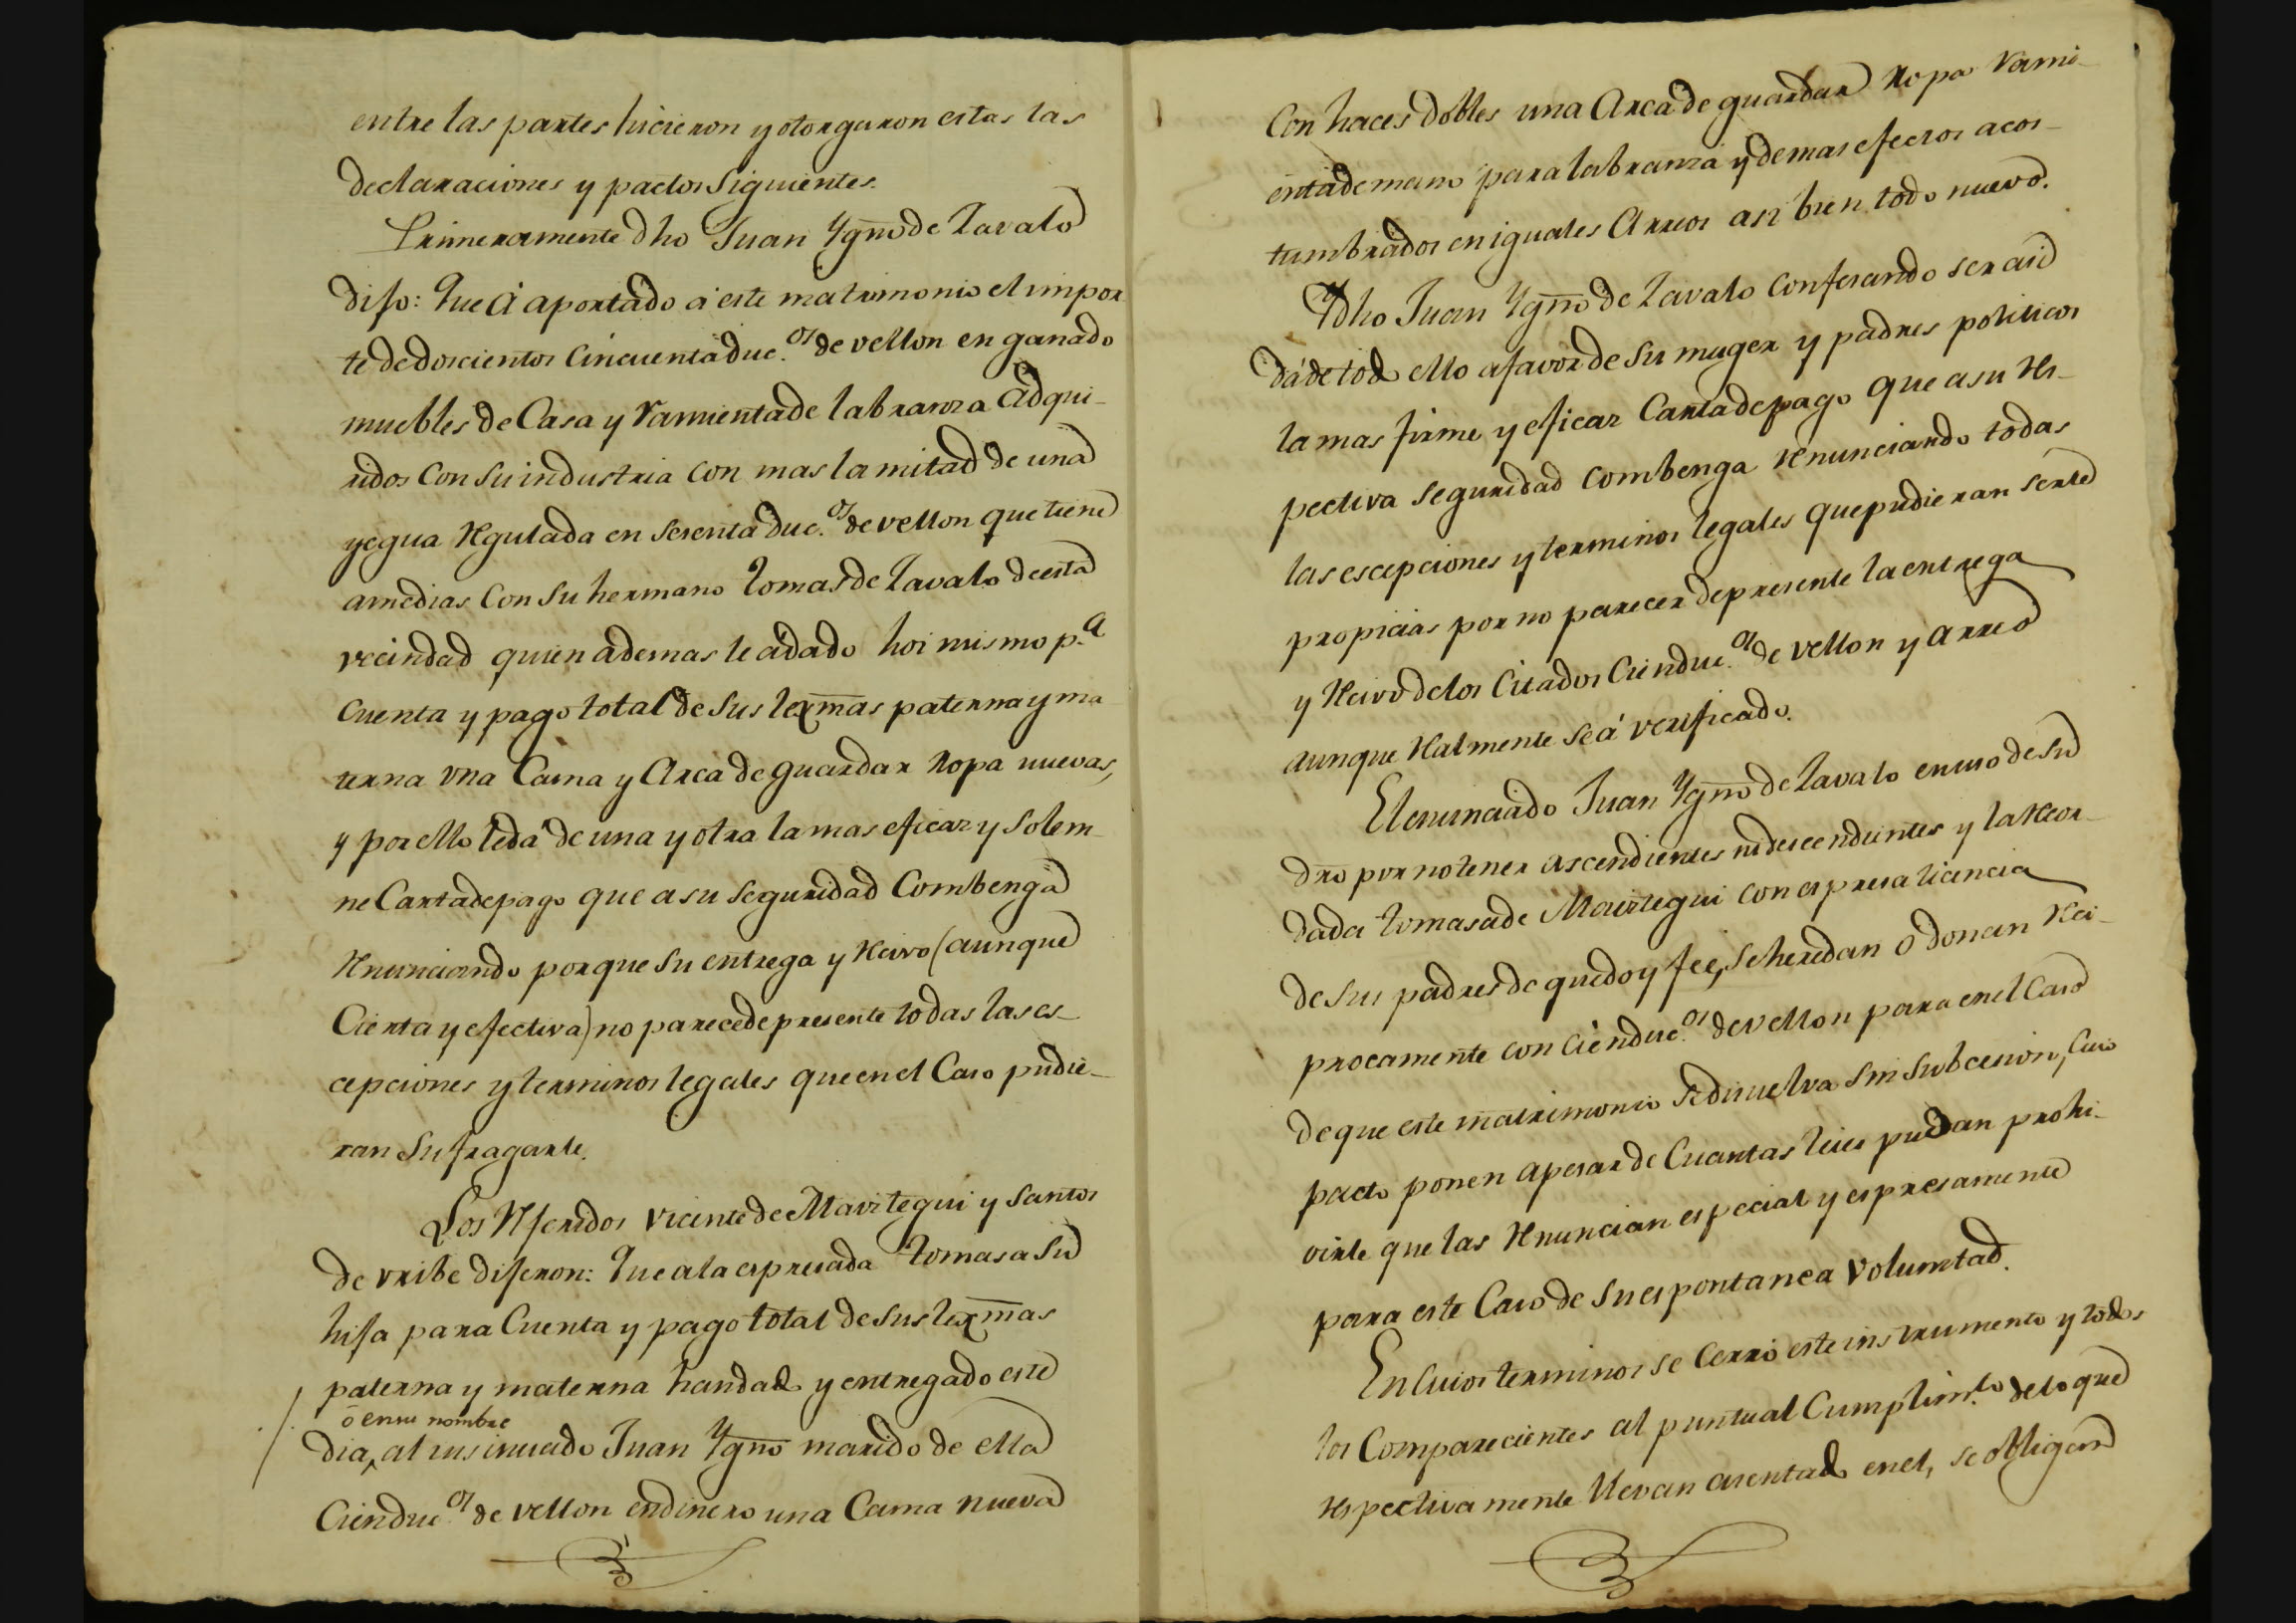 entre las partes hicieron y otorgaron estas las
declaraciones y pactos siguientes.
Primeramente dho Juan Ygnō de Zavalo
dijo: Que á aportado á este matrimonio el impor
te de doscientos cincuenta duc.os de vellon en ganado
muebles de Casa y ramienta de labranza adqui-
ridos con su industria con mas la mitad de una
yegua regulada en sesenta duc.os de vellon que tiene
a medias con su hermano Tomas de Zavalo de esta
vecindad quien ademas le a dado hoi mismo p.a
cuenta y pago total de sus lexmās paterna y ma
terna una Cama y Arca de guardar ropa nuevas,
y por ello le dá de una y otra la mas eficaz y solem-
ne Carta de pago que a su seguridad combenga
renunciando porque su entrega y recivo (aunque
Cierta y efectiva) no parece de presente todas las es-
cepciones y terminos legales que en el Caso pudie-
ran sufragarle.
Los referidos Vicente de Maviztegui y Santos
de Uribe dijeron: Que a la espresada Tomasa su
hija para Cuenta y pago total de sus lexmās
paterna y materna han dado y entregado este
ó en su nombre
dia, al insinuado Juan Ygnō marido de ella
Cien duc.os de vellon en dinero una Cama nueva
Con haces dobles una Arca de guardar ropa rami-
enta de mano para labranza y demas efectos acos-
tumbrados en iguales Arreos asi bien todo nuevo.
Y dho Juan Ygnō de Zavalo confesando ser asi
dá de todo ello a favor de su muger y padres politicos
la mas firme y eficaz Carta de pago que a su res-
pectiva seguridad combenga renunciando todas
las escepciones y terminos legales que pudieran serle
propicias por no parecer de presente la entrega
y recivo de los citados Cien duc.os de vellon y arreo
aunque realmente se á verificado.
El enunciado Juan Ygnō de Zavalo en uso de su
dro por no tener ascendientes ni descendientes y la recor-
dada Tomasa de Maviztegui con espresa licencia
de sus padres de que doy fee, se heredan o donan reci-
procamente con cien duc.os de vellon para en el Caso
de que este matrimonio se disuelva sin subcesion, cuio
pacto ponen apesar de Cuantas leies puedan prohi-
virle que las renuncian especial y espresamente
para este Caso de su espontanea voluntad.
En Cuios terminos se Cerró este instrumento y todos
los Comparecientes al puntual Cumplim.to de lo que
respectivamente llevan asentado en el, se obligan